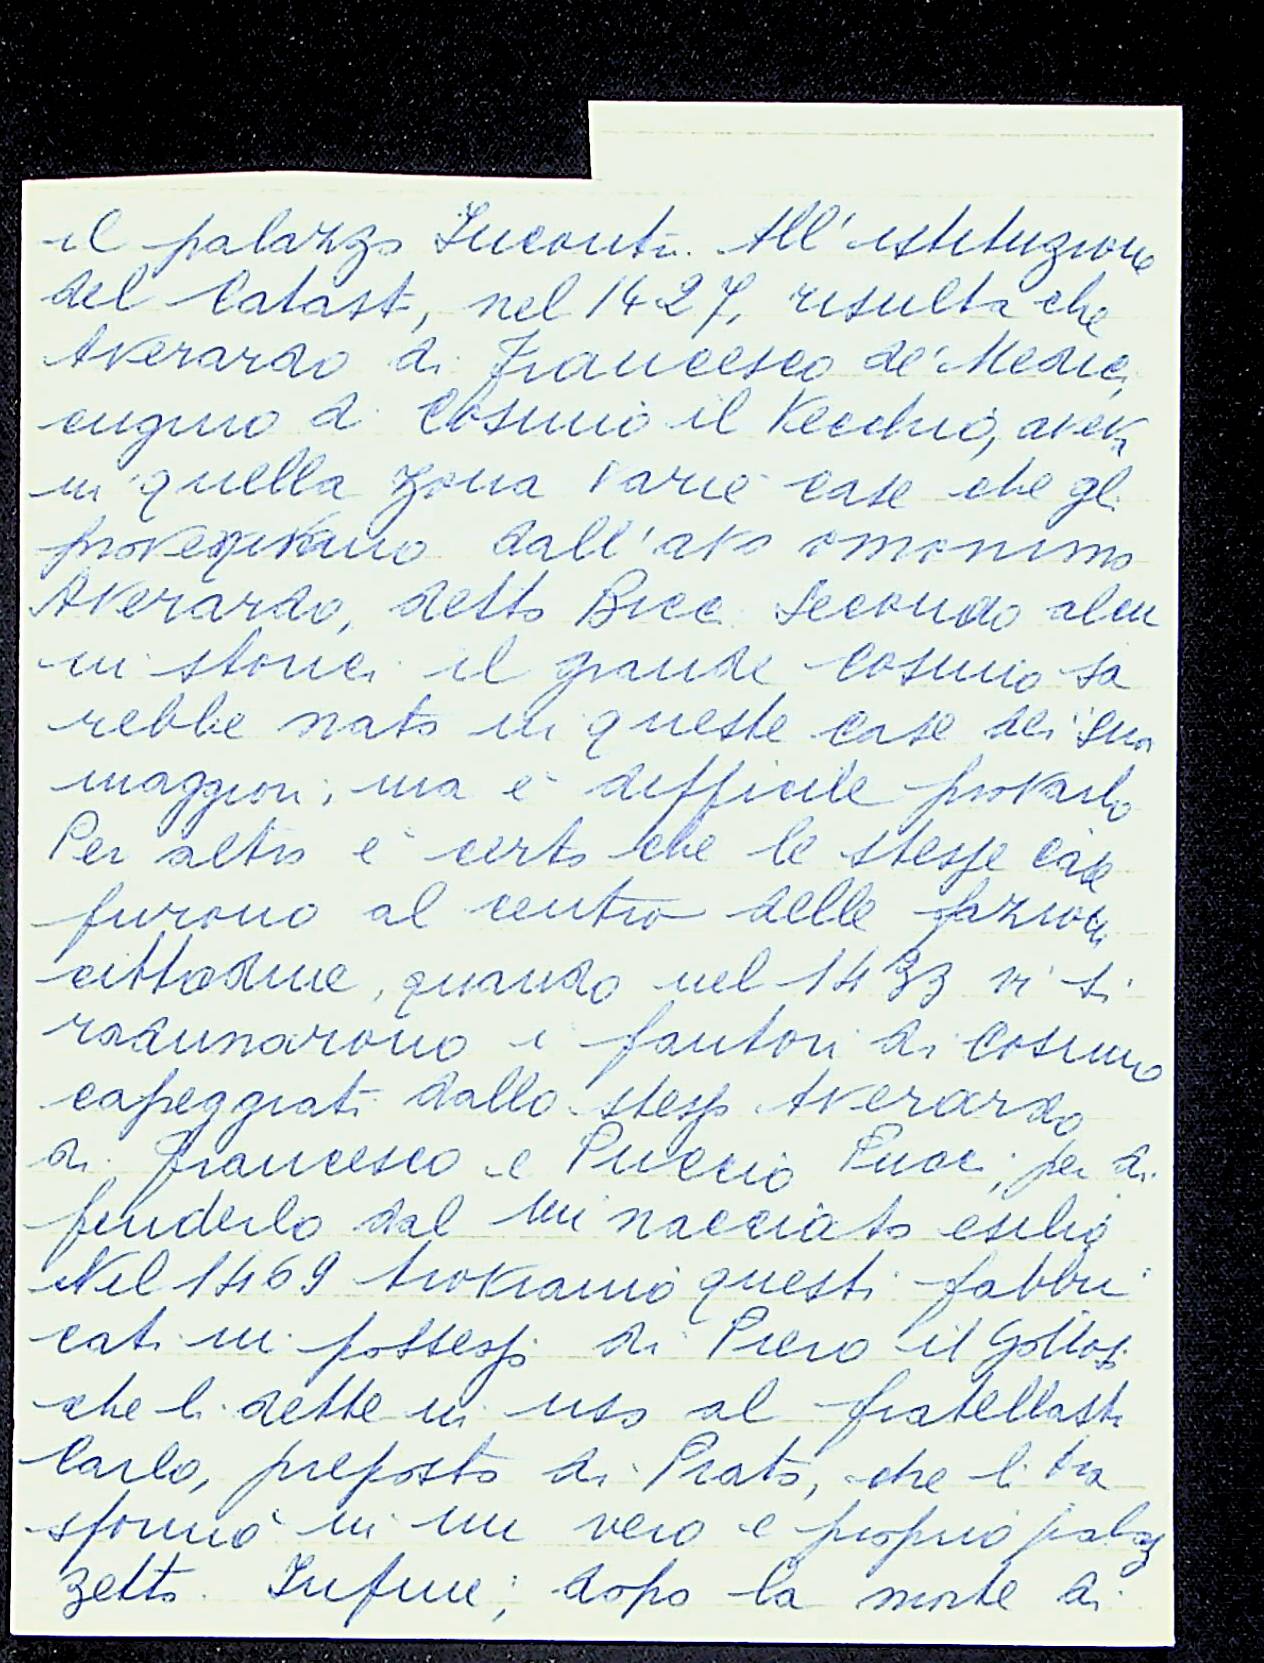 il palazzo Incontri. All'istituzione
del Catasto, nel 1427, risulta che
Averardo di Francesco de' Medici,
cugino di Cosimo il Vecchio, aveva
in quella zona varie case che gli
provenivano dall'avo omonimo
Averardo, detto Bicci. Secondo alcu
ni storici il grande Cosimo sa
rebbe nato in queste case dei suoi
maggiori, ma è difficile provarlo
Per altro è certo che le stesse case
furono al centro delle fazioni
cittadine, quando nel 1433 vi si
radunarono i fautori di Cosimo
capeggiati dallo stesso Averardo
di Francesco e Puccio Pucci, per di
fenderlo dal minacciato esilio
Nel 1469 troviamo questi fabbri
cati in possesso di Piero il Gottoso
che li dette in uso al fratellastro
Carlo, preposto di Prato, che li tra
sformò in un vero e proprio palaz
zetto. Infine, dopo la morte di